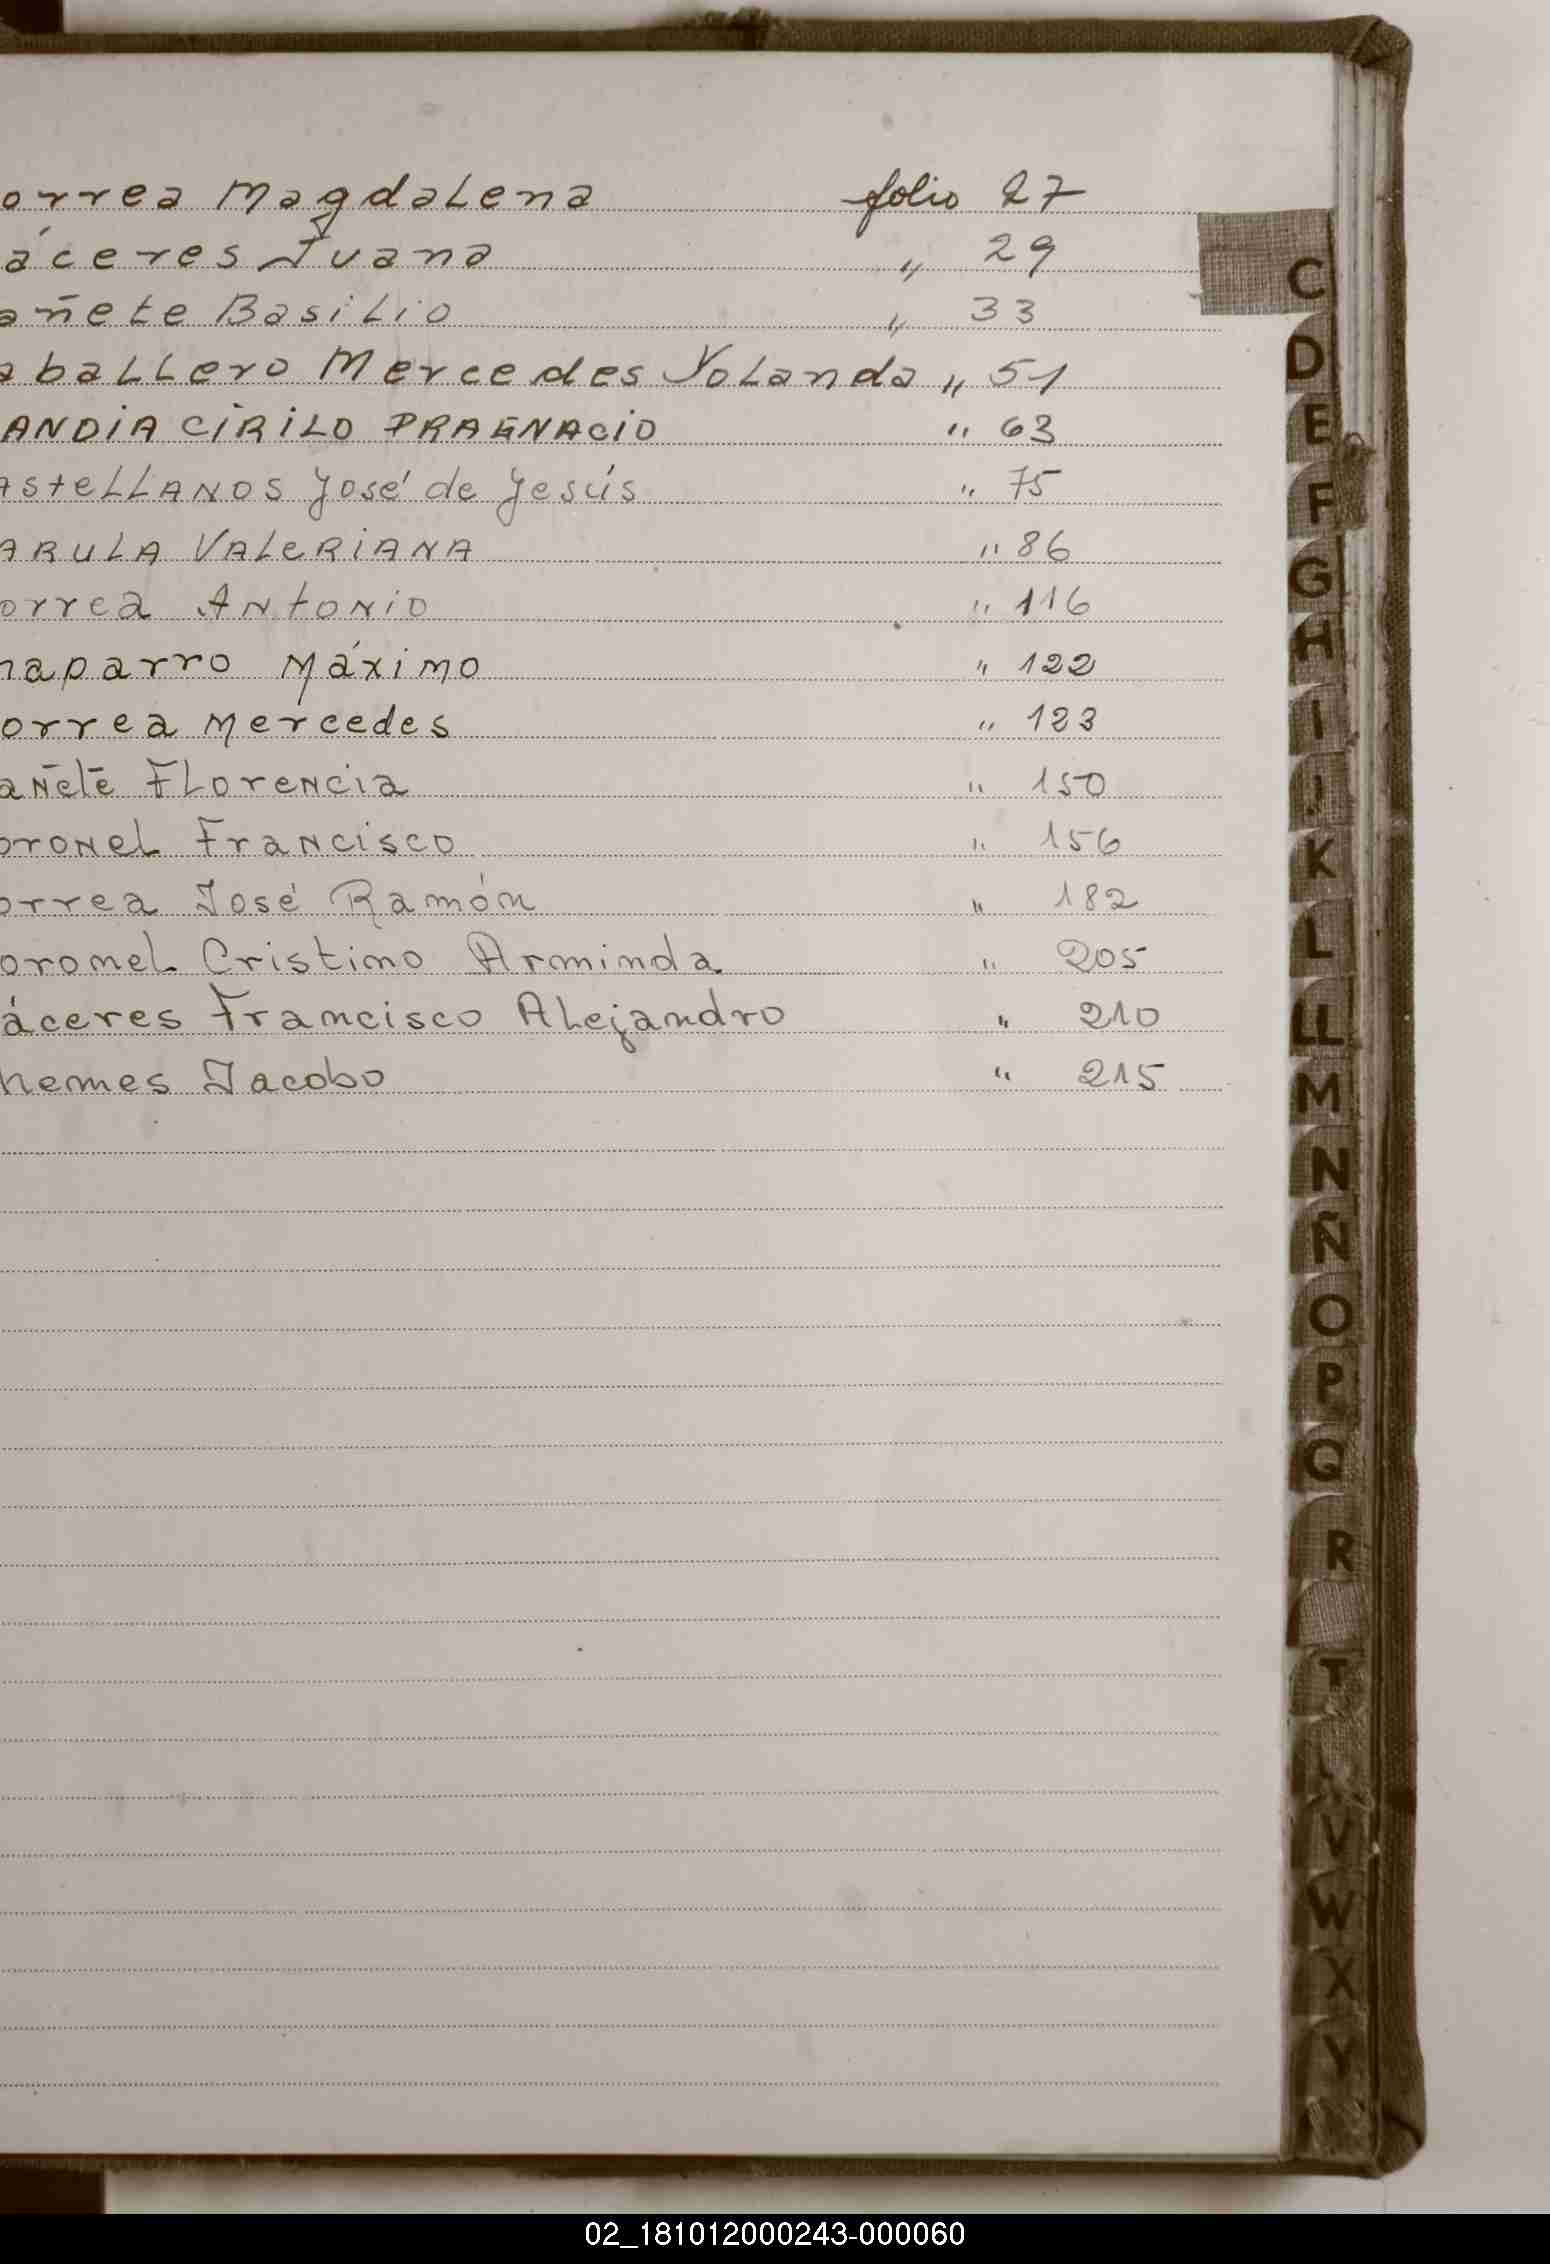 orrea Magdalena folio 27
áceres Juana " 29
añete Basilio " 33
aballero Mercedes Yolanda " 51
ANDIA CIRILO PRAGNACIO " 63
astellanos José de Jesús " 75
ARULA VALERIANA " 86
orrea Antonio " 116
haparro Máximo " 122
orrea Mercedes " 123
añete Florencia " 150
oronel Francisco " 156
orrea José Ramón " 182
oronel Cristino Arminda " 205
áceres Francisco Alejandro " 210
hemes Jacobo " 215
C
D
E
F
G
H
I
J
K
L
LL
M
N
Ñ
O
P
Q
R
T
V
W
X
Y
02_181012000243-000060